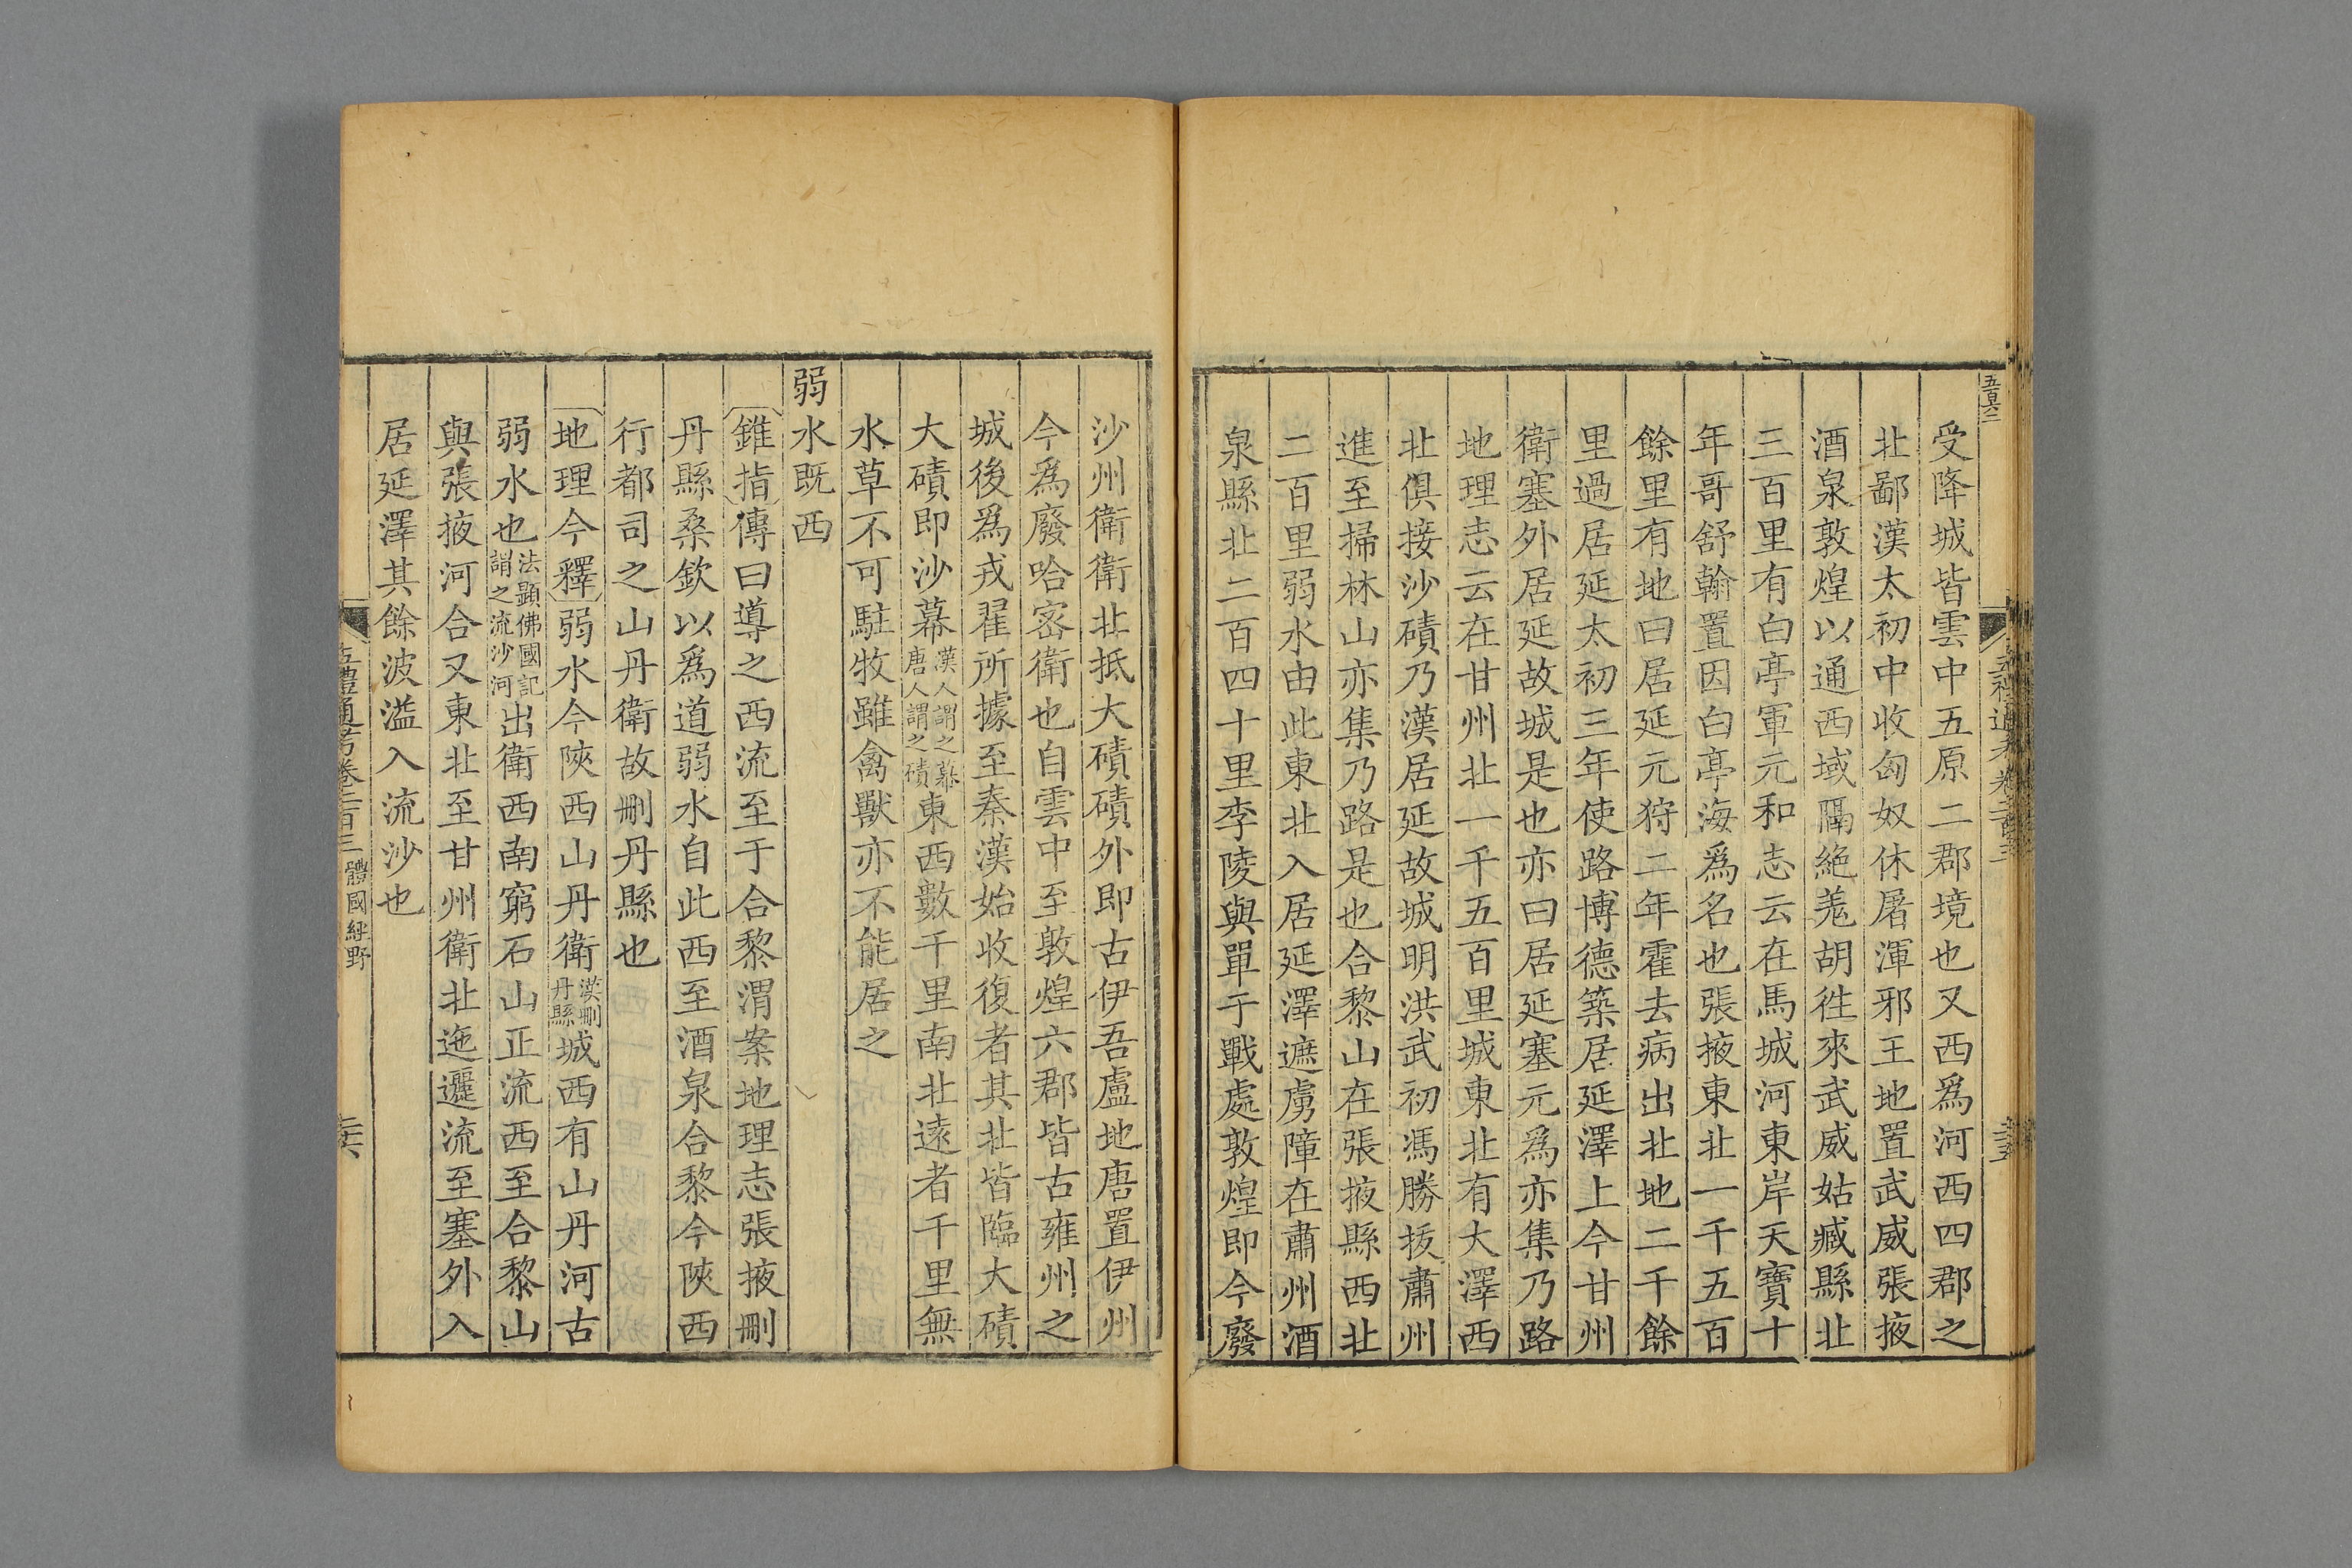 五百六二
受降城皆雲中五原二郡境也又西爲河西四郡之
北鄙漢太初中收匈奴休屠渾邪王地置武威張掖
酒泉敦煌以通西域隔絶羌胡徃來武威姑臧縣北
三百里有白亭軍元和志云在馬城河東岸天寶十
年哥舒翰置因白亭海爲名也張掖東北一千五百
餘里有地曰居延元狩二年霍去病出北地二千餘
里過居延太初三年使路博德築居延澤上今甘州
衛塞外居延故城是也亦曰居延塞元爲亦集乃路
地理志云在甘州北一千五百里城東北有大澤西
北俱接沙磧乃漢居延故城明洪武初馮勝拔肅州
進至掃林山亦集乃路是也合黎山在張掖縣西北
二百里弱水由此東北入居延澤遮虜障在肅州酒
泉縣北二百四十里李陵與單于戰處敦煌即今廢
沙州衛衛北抵大磧磧外即古伊吾盧地唐置伊州
今爲廢哈密衛也自雲中至敦煌六郡皆古雍州之
城後爲戎翟所據至秦漢始收復者其北皆臨大磧
大磧即沙幕漢人謂之幕唐人謂之磧東西數千里南北遠者千里無
水草不可駐牧雖禽獸亦不能居之
弱水既西
錐指傳曰導之西流至于合黎渭案地理志張掖刪
丹縣桑欽以爲道弱水自此西至酒泉合黎今陝西
行都司之山丹衛故刪丹縣也
地理今釋弱水今陝西山丹衛漢刪丹縣城西有山丹河古
弱水也法顯佛國記謂之流沙河出衛西南窮石山正流西至合黎山
與張掖河合又東北至甘州衛北迤邐流至塞外入
居延澤其餘波溢入流沙也
五禮通考卷二百三 體國經野